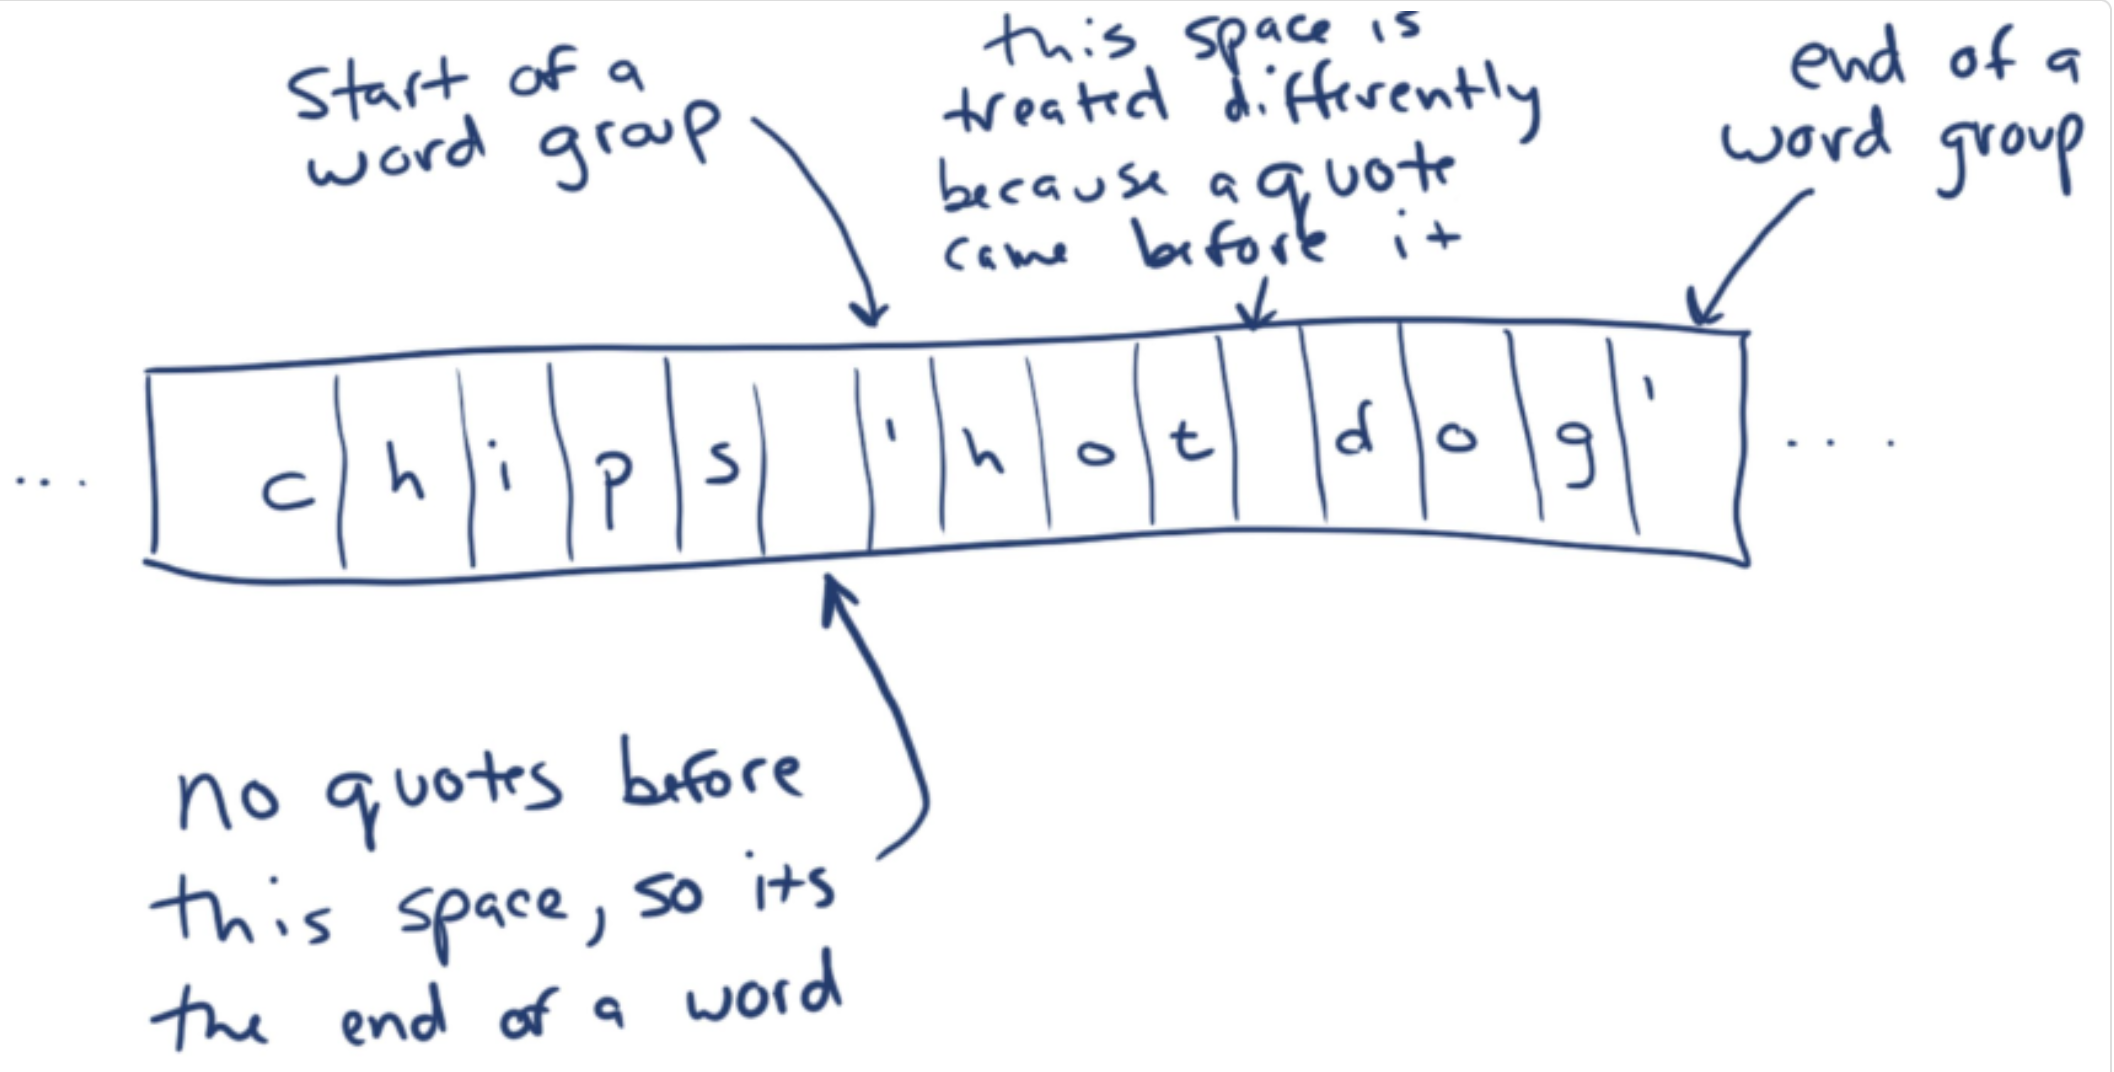 start of a
word group
this space is
treated differently
because a quote
came before it
end of a
word group
... c h i p s ' h o t d o g ' ...
no quotes before
this space, so its
the end of a word